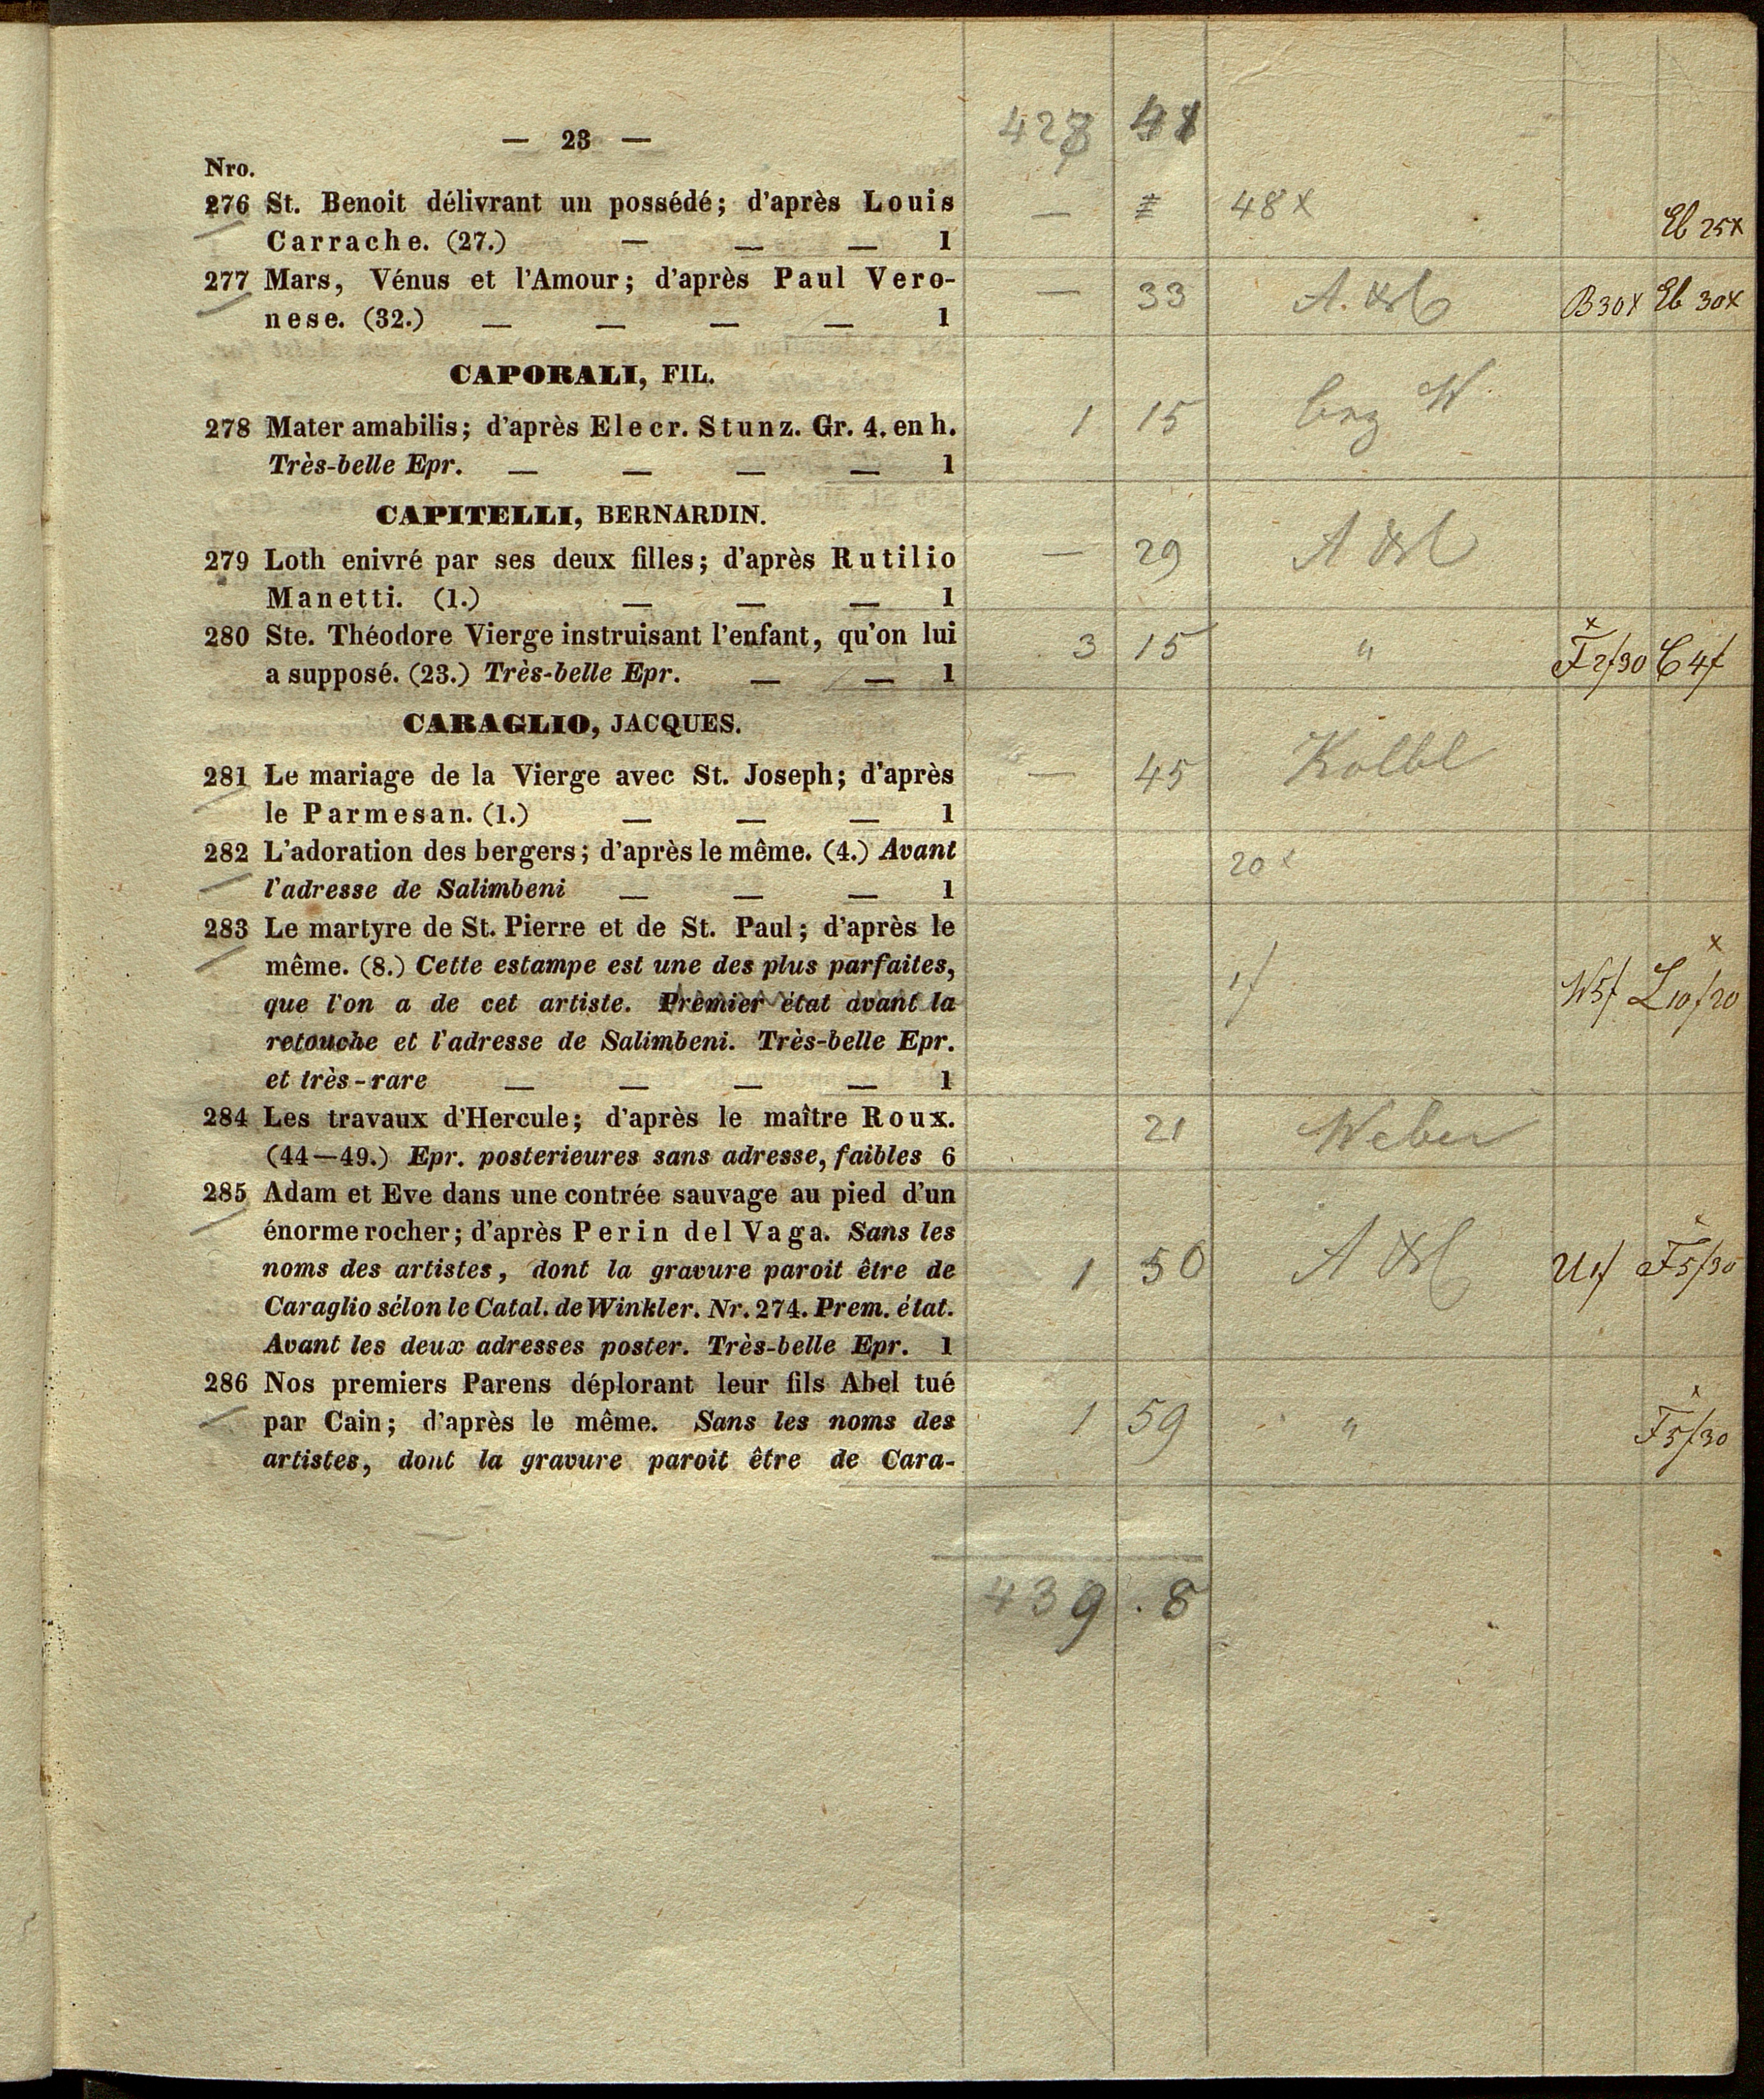 — 23 —
48
Nro.
276 St. Benoit délivrant un possédé; d'après Louis
Carrache. (27.) — — — 1
— 48x Eb 25x
277 Mars, Vénus et l'Amour; d'après Paul Vero-
nese. (32.) — — — — 1
— 33 B30x Eb 30x
CAPORALI, FIL.
278 Mater amabilis; d'après Elecr. Stunz. Gr. 4. en h.
Très-belle Epr. — — — — 1
1 15 W
CAPITELLI, BERNARDIN.
279 Loth enivré par ses deux filles; d'après Rutilio
Manetti. (1.) — — — 1
— 29
280 Ste. Théodore Vierge instruisant l'enfant, qu'on lui
a supposé. (23.) Très-belle Epr. — — 1
3 15 " x F2f30 C 4f
CARAGLIO, JACQUES.
281 Le mariage de la Vierge avec St. Joseph; d'après
le Parmesan. (1.) — — — 1
— 45 Kolbl
282 L'adoration des bergers; d'après le même. (4.) Avant
l'adresse de Salimbeni — — — 1
20x
283 Le martyre de St. Pierre et de St. Paul; d'après le
même. (8.) Cette estampe est une des plus parfaites,
que l'on a de cet artiste. Premier état avant la
retouche et l'adresse de Salimbeni. Très-belle Epr.
et très-rare — — — — 1
1f W5f x L10f20
284 Les travaux d'Hercule; d'après le maître Roux.
(44—49.) Epr. posterieures sans adresse, faibles 6
21 Weber
285 Adam et Eve dans une contrée sauvage au pied d'un
énorme rocher; d'après Perin del Vaga. Sans les
noms des artistes, dont la gravure paroit être de
Caraglio sélon le Catal. de Winkler. Nr. 274. Prem. état.
Avant les deux adresses poster. Très-belle Epr. 1
1 50 U1f x F5f30
286 Nos premiers Parens déplorant leur fils Abel tué
par Cain; d'après le même. Sans les noms des
artistes, dont la gravure paroit être de Cara-
1 59 " x F5f30
439 . 8